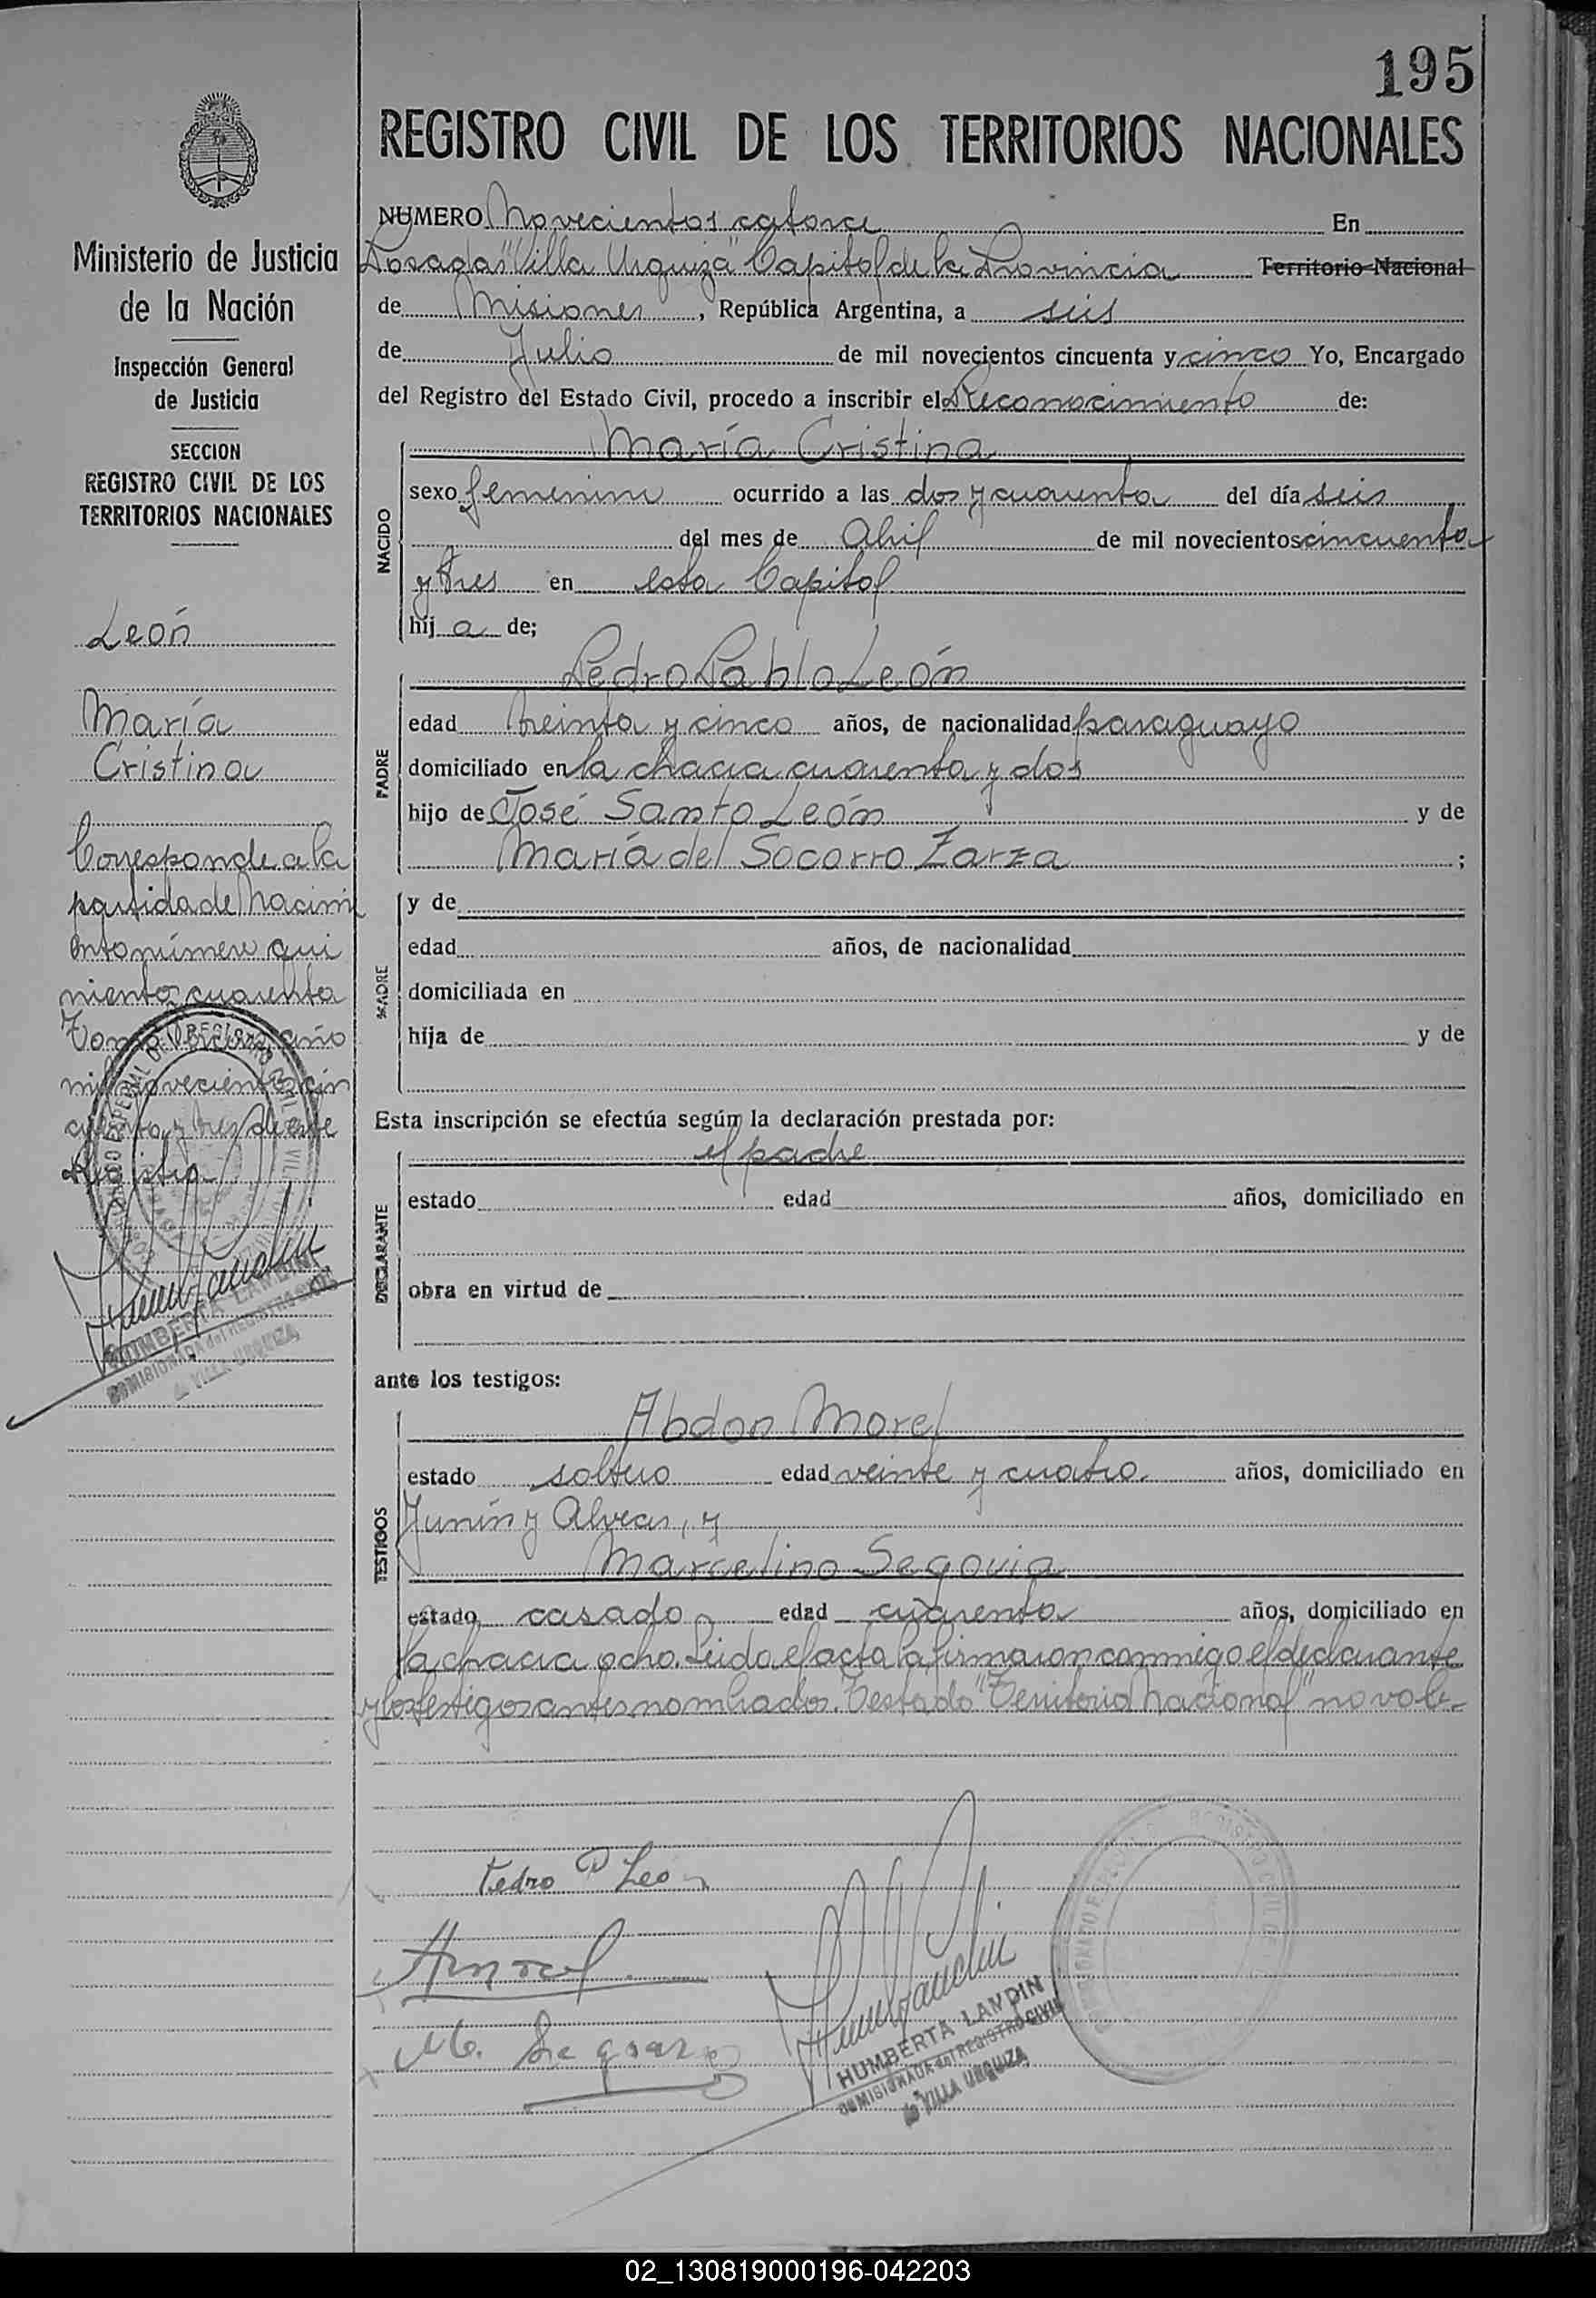 195
REGISTRO CIVIL DE LOS TERRITORIOS NACIONALES
NUMERO Novecientos catorce En
Posadas "Villa Urquiza" Capital de la Provincia Territorio Nacional
de Misiones, República Argentina, a seis
de Julio de mil novecientos cincuenta y cinco Yo, Encargado
del Registro del Estado Civil, procedo a inscribir el Reconocimiento de:
NACIDO
María Cristina
sexo femenino ocurrido a las dos y cuarenta del día seis
del mes de Abril de mil novecientos cincuenta
y tres en esta Capital
hij a de;
PADRE
Pedro Pablo León
edad treinta y cinco años, de nacionalidad paraguayo
domiciliado en la chacra cuarenta y dos
hijo de José Santo León y de
María del Socorro Zarza ;
MADRE
y de
edad años, de nacionalidad
domiciliada en
hija de y de
Esta inscripción se efectúa según la declaración prestada por:
DECLARANTE
el padre
estado edad años, domiciliado en
obra en virtud de
ante los testigos:
TESTIGOS
Abdon Morel
estado soltero edad veinte y cuatro años, domiciliado en
Junín y Alvear, y
Marcelino Segovia
estado casado edad cuarenta años, domiciliado en
la chacra ocho. Leida el acta la firmaron conmigo el declarante
y los testigos antes nombrados. Testado "Territorio Nacional" no vale.
Pedro P Leon
AMorel
M. Segovia
HUMBERTA LANDIN
COMISIONADA del REGISTRO CIVIL
de VILLA URQUIZA
Ministerio de Justicia
de la Nación
Inspección General
de Justicia
SECCION
REGISTRO CIVIL DE LOS
TERRITORIOS NACIONALES
León
María
Cristina
Corresponde a la
partida de Nacimi
ento número qui
niento cuarenta
Tomo año
mil novecientos cin
cuenta y tres de este
Registro
HUMBERTA LANDIN
COMISIONADA del REGISTRO CIVIL
de VILLA URQUIZA
02_130819000196-042203